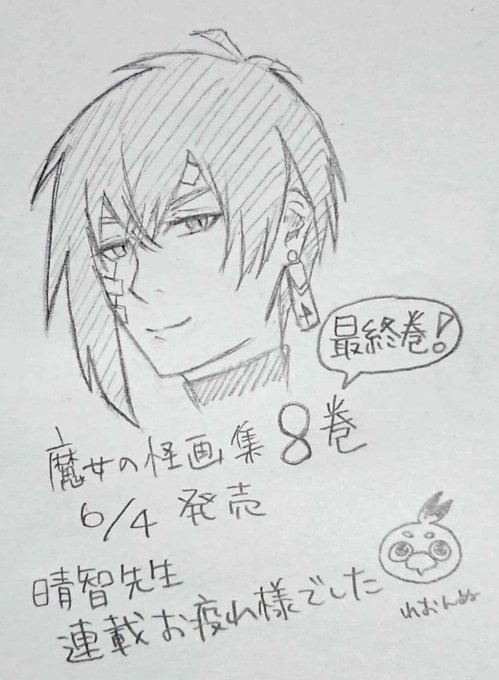 最終巻!
魔女の怪画集 8巻
6/4 発売
晴智先生
連載お疲れ様でした
れおんぬ